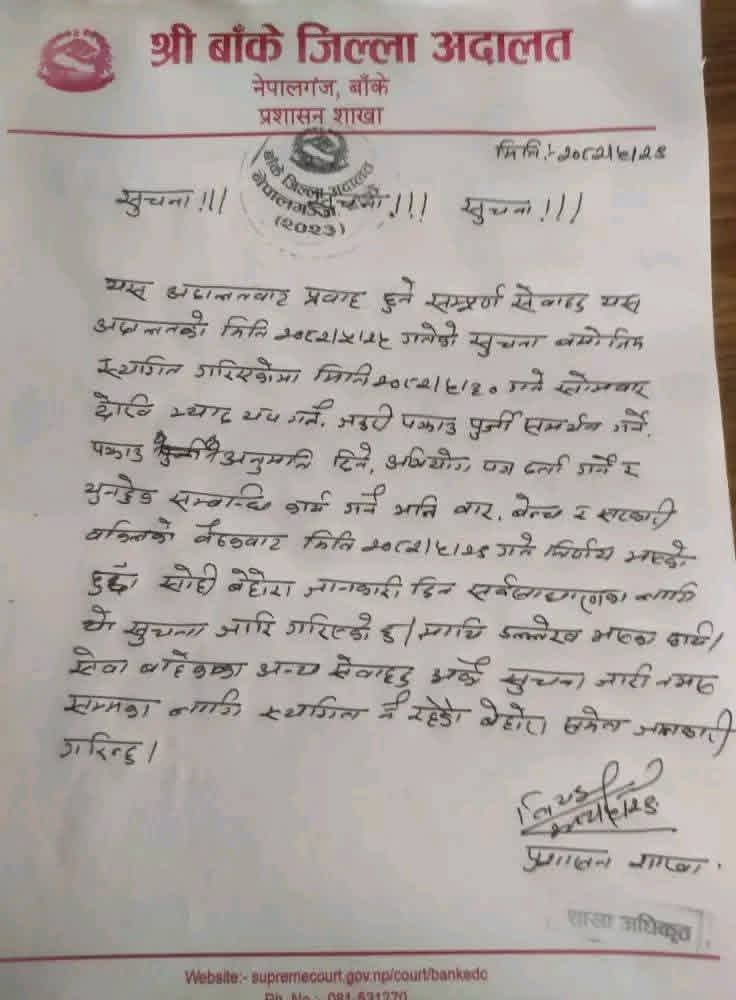 श्री बाँके जिल्ला अदालत
नेपालगंज, बाँके
प्रशासन शाखा
मिति:-२०८२/५/२९
बाँके जिल्ला अदालत
नेपालगञ्ज
(२०२३)
सुचना!!! सुचना!!! सुचना!!!
यस अदालतबाट प्रवाह हुने सम्पूर्ण सेवाहरु यस
अदालतको मिति २०८२/५/२५ गतेको सुचना बमोजिम
स्थगित गरिएकोमा मिति २०८२/५/३० गते सोमवार
देखि म्याद थप गर्ने, जरुरी पक्राउ पुर्जी समर्थन गर्ने,
पक्राउ अनुमति दिने, अभियोग पत्र दर्ता गर्ने र
थुनछेक सम्बन्धि कार्य गर्ने भनि बार, बेन्च र सरकारी
वकिलको बैठकबाट मिति २०८२/५/२९ गते निर्णय भएको
हुँदा सोही बेहोरा जानकारी दिन सर्वसाधारणका लागि
यो सुचना जारि गरिएको छ। माथि उल्लेख भएका कार्य/
सेवा बाहेकका अन्य सेवाहरु अर्को सुचना जारी नभए
सम्मका लागि स्थगित नै रहेको बेहोरा समेत जानकारी
गरिन्छ।
२०८२/५/२९
प्रशासन शाखा
शाखा अधिकृत
Website:- supremecourt.gov.np/court/bankedc
Ph. No.:- 081-531270